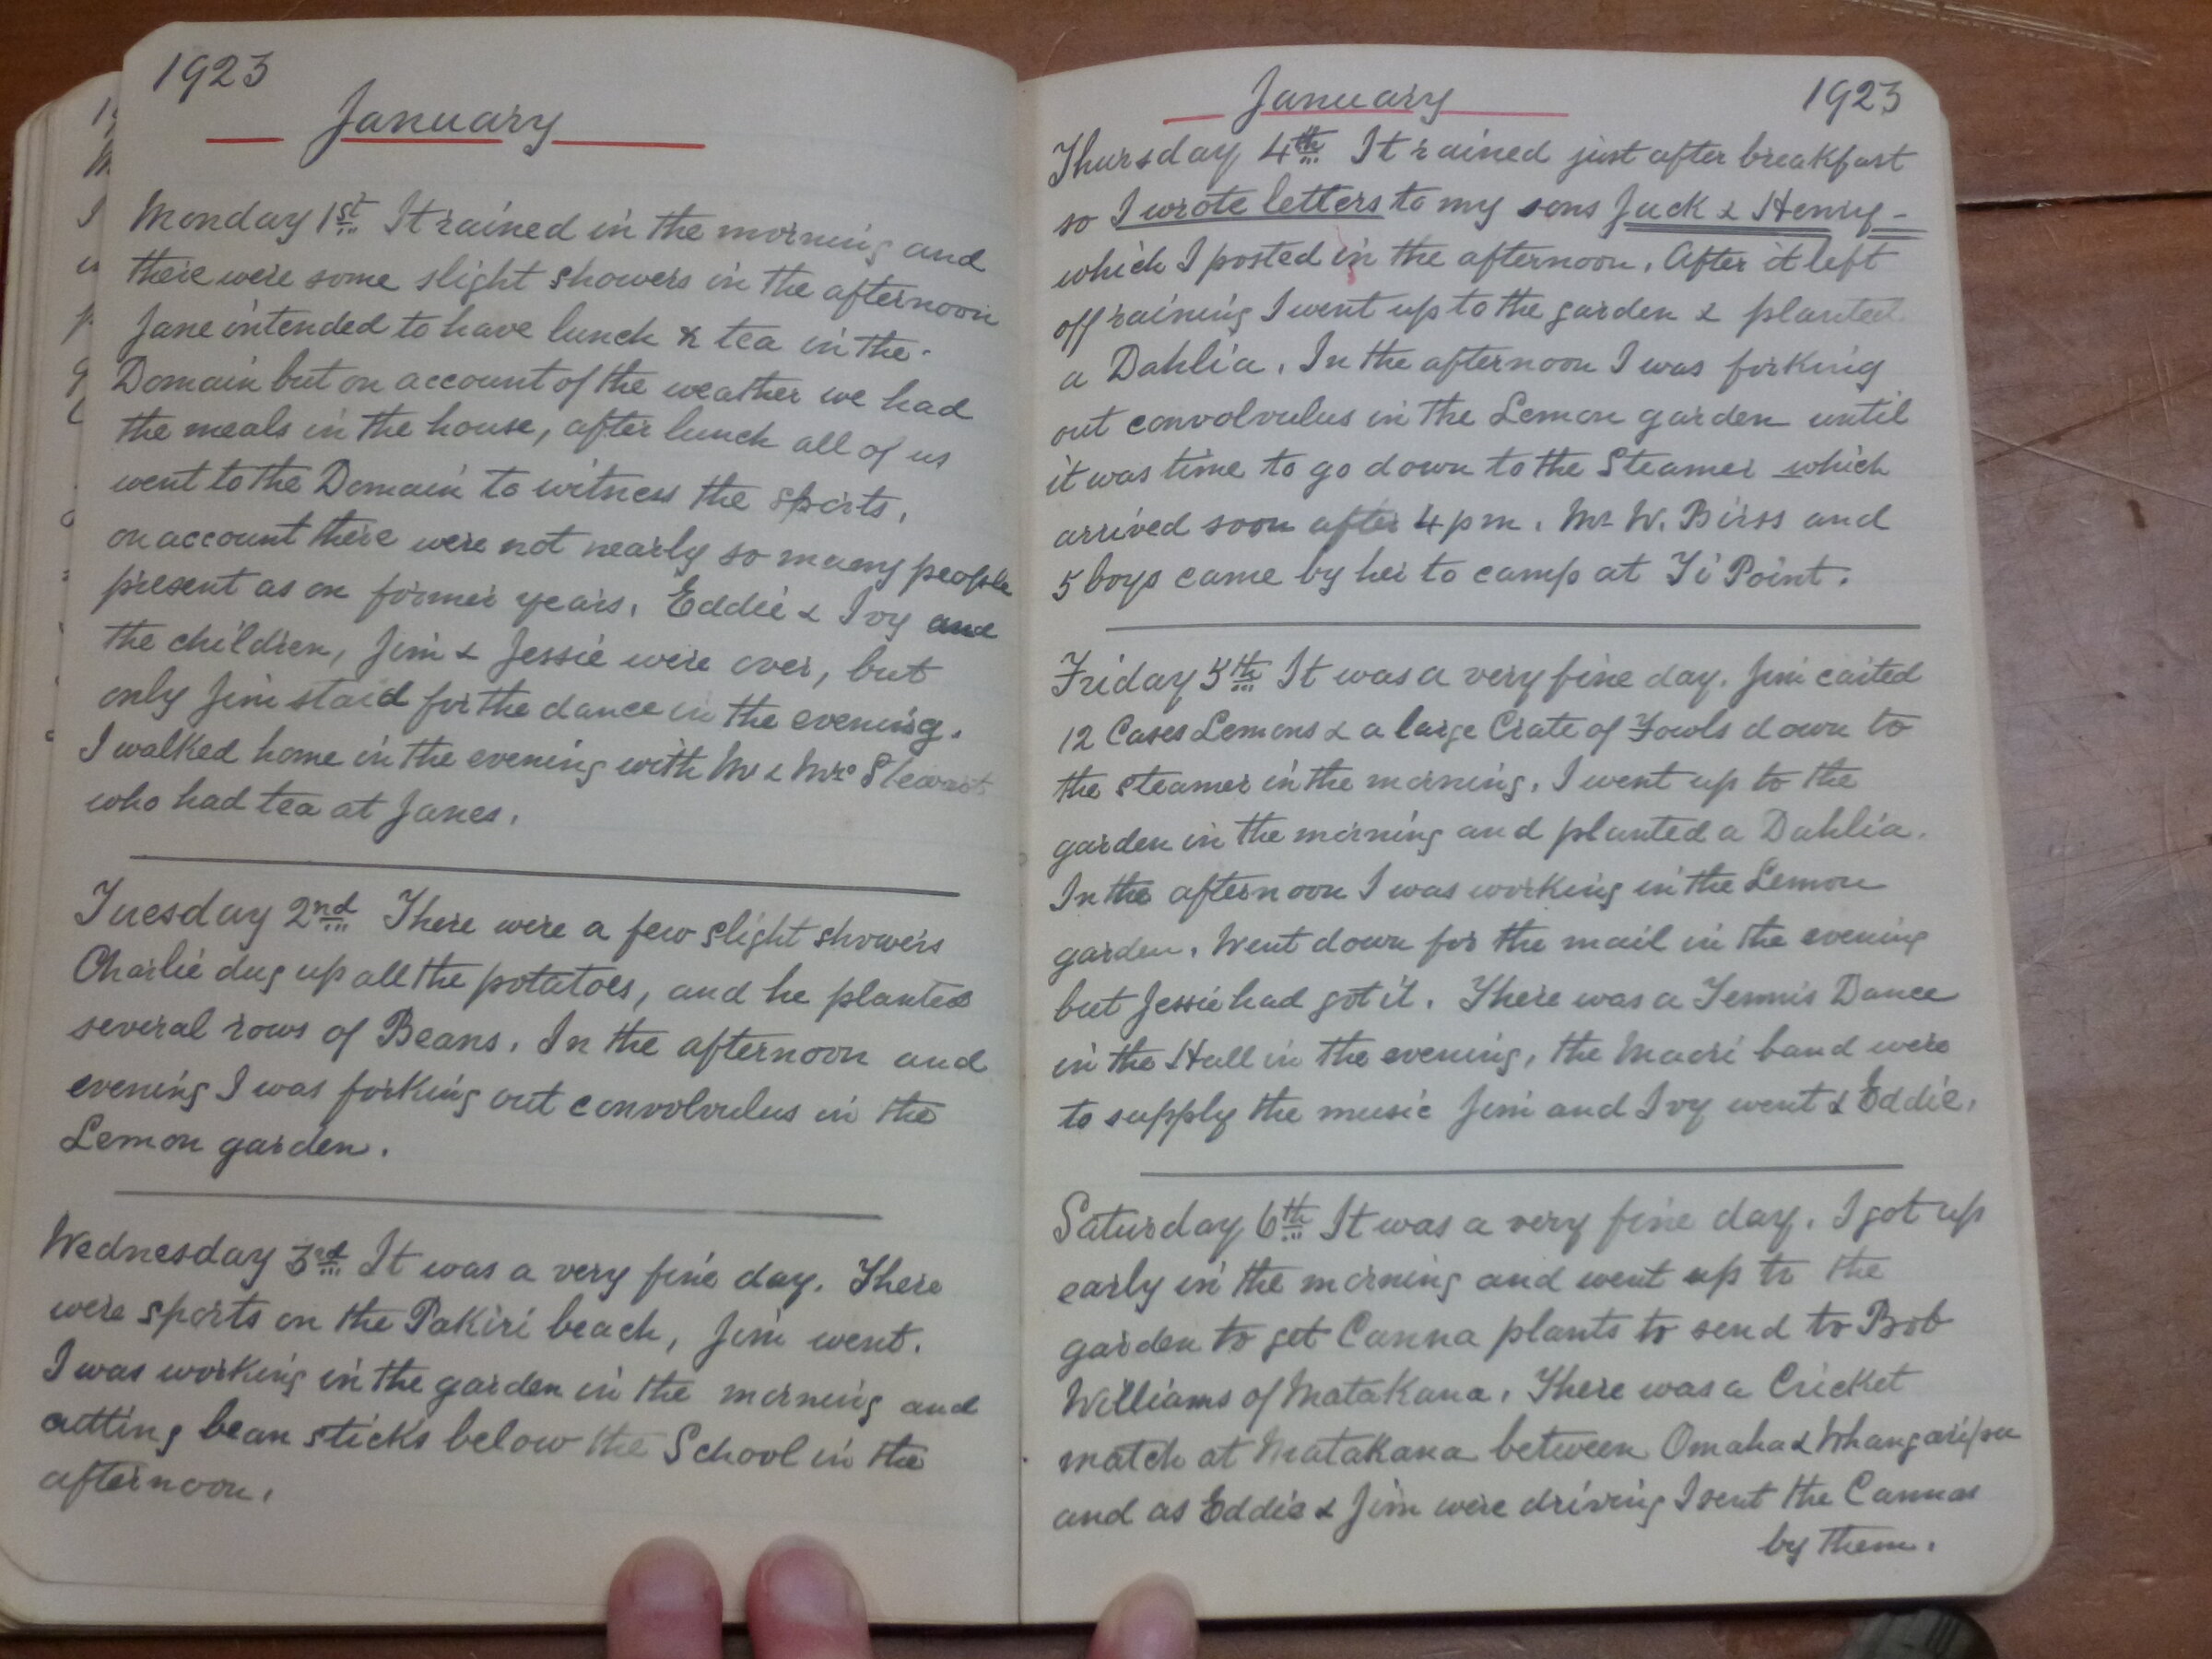 1923
January
Monday 1st It rained in the morning and
there were some slight showers in the afternoon
Jane intended to have lunch & tea in the
Domain but on account of the weather we had
the meals in the house, after lunch all of us
went to the Domain to witness the sports,
on account there were not nearly so many people
present as on former years. Eddie & Ivy and
the children, Jim & Jessie were over, but
only Jim staid for the dance in the evening.
I walked home in the evening with Mr & Mrs Stewart
who had tea at Janes.
Tuesday 2nd There were a few slight showers
Charlie dug up all the potatoes, and he planted
several rows of Beans. In the afternoon and
evening I was forking out convolvulus in the
Lemon garden.
Wednesday 3rd It was a very fine day. There
were sports on the Pakiri beach, Jim went.
I was working in the garden in the morning and
cutting bean sticks below the School in the
afternoon.
January 1923
Thursday 4th It rained just after breakfast
so I wrote letters to my sons Jack & Henry -
which I posted in the afternoon. After it left
off raining I went up to the garden & planted
a Dahlia. In the afternoon I was forking
out convolvulus in the Lemon garden until
it was time to go down to the Steamer which
arrived soon after 4 pm. Mr W. Birss and
5 boys came by her to camp at Ti Point.
Friday 5th It was a very fine day. Jim carted
12 Cases Lemons & a large Crate of Fowls down to
the steamer in the morning. I went up to the
garden in the morning and planted a Dahlia.
In the afternoon I was working in the Lemon
garden. Went down for the mail in the evening
but Jessie had got it. There was a Tennis Dance
in the Hall in the evening, the Maori band were
to supply the music Jim and Ivy went & Eddie.
Saturday 6th It was a very fine day. I got up
early in the morning and went up to the
garden to get Canna plants to send to Bob
Williams of Matakana. There was a Cricket
match at Matakana between Omaha & Whangaripu
and as Eddie & Jim were driving I sent the Cannas
by them.